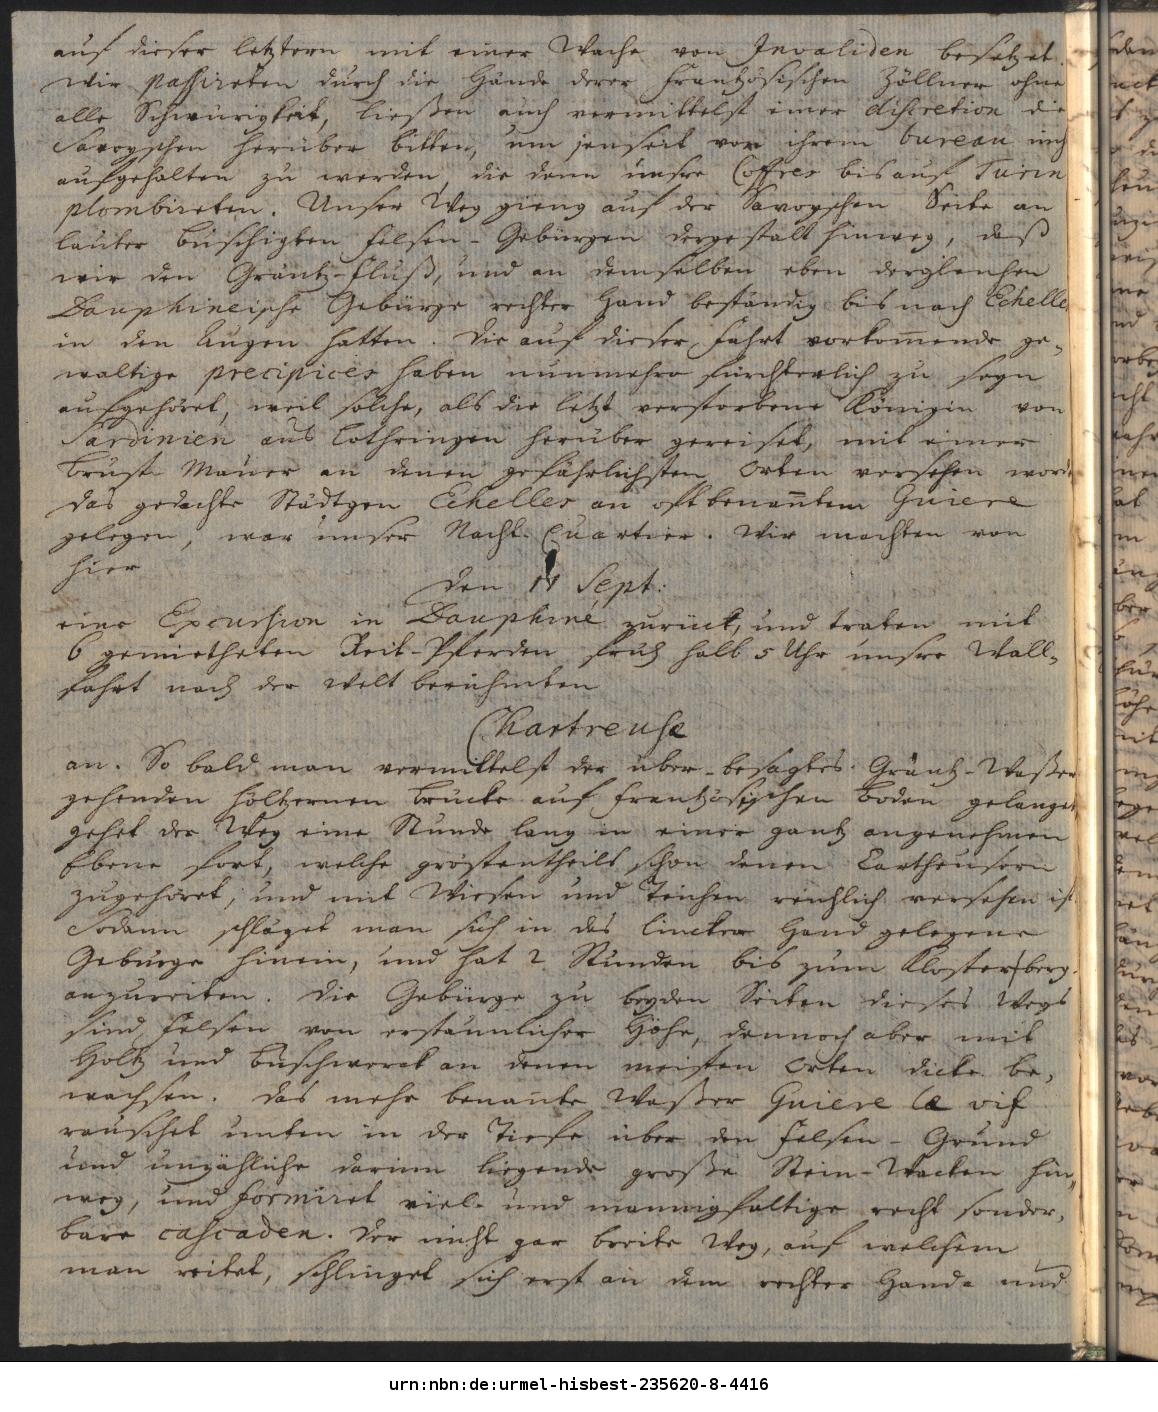 auf dieser letztern mit einer Wache von Invaliden besetzet.
Wir passireten durch die Hände derer Frantzösischen Zöllner ohne
alle Schwürigkeit, ließen auch vermittelst einer discretion die
Savoyschen herüber bitten, um jenseit von ihrem bureau nich
aufgehalten zu werden, die denn unsre Coffres bis auf Turin
plombireten. Unser Weg gieng auf der Savoyschen Seite an
lauter büschigten Felsen-Gebürgen dergestalt hinweg, daß
wir den Gräntz-Fluß, und an demselben eben dergleichen
Dauphineische Gebürge rechter Hand beständig bis nach Echelles
in den Augen hatten. Die auf dieser Fahrt vorkom̅ende ge-
waltige precipices haben nunmehro fürchterlich zu seyn
aufgehöret, weil solche, als die letzt verstorbene Königin von
Sardinien aus Lothringen herüber gereiset, mit einer
Brust-Mauer an denen gefährlichsten Orten versehen word
Das gedachte Städtgen Echelles an oftbenan̅tem Guiere
gelegen, war unser Nacht-Quartier. Wir machten von
hier
den 11 Sept:
eine Excursion in Dauphiné zurück, und traten mit
6 gemietheten Reit-Pferden früh halb 5 Uhr unsre Wall-
fahrt nach der Welt berühmten
Chartreuse
an. So bald man vermittelst der über besagtes Gräntz-Waßer
gehenden höltzernen Brücke auf Frantzösischen Boden gelanget,
gehet der Weg eine Stunde lang in einer gantz angenehmen
Ebene fort, welche gröstentheils schon denen Cartheusern
zugehöret, und mit Wiesen und Teichen reichlich versehen ist.
Sodann schläget man sich in das lincker Hand gelegene
Gebürge hinein, und hat 2 Stunden bis zum Kloster berg-
anzureiten. Die Gebürge zu beyden Seiten dieses Wegs
sind Felsen von erstaunlicher Höhe, dennoch aber mit
Holtz und Buschwerck an denen meisten Orten dicke be-
wachsen. Das mehr benan̅te Waßer Guiere le vif
rauschet unten in der Tiefe über den Felsen-Grund
und unzähliche darinn liegende große Stein-Wacken hin-
weg, und formiret viel- und mannigfaltige recht sonder-
bare cascaden. Der nicht gar breite Weg, auf welchem
man reitet, schlinget sich erst an dem rechter Hand und